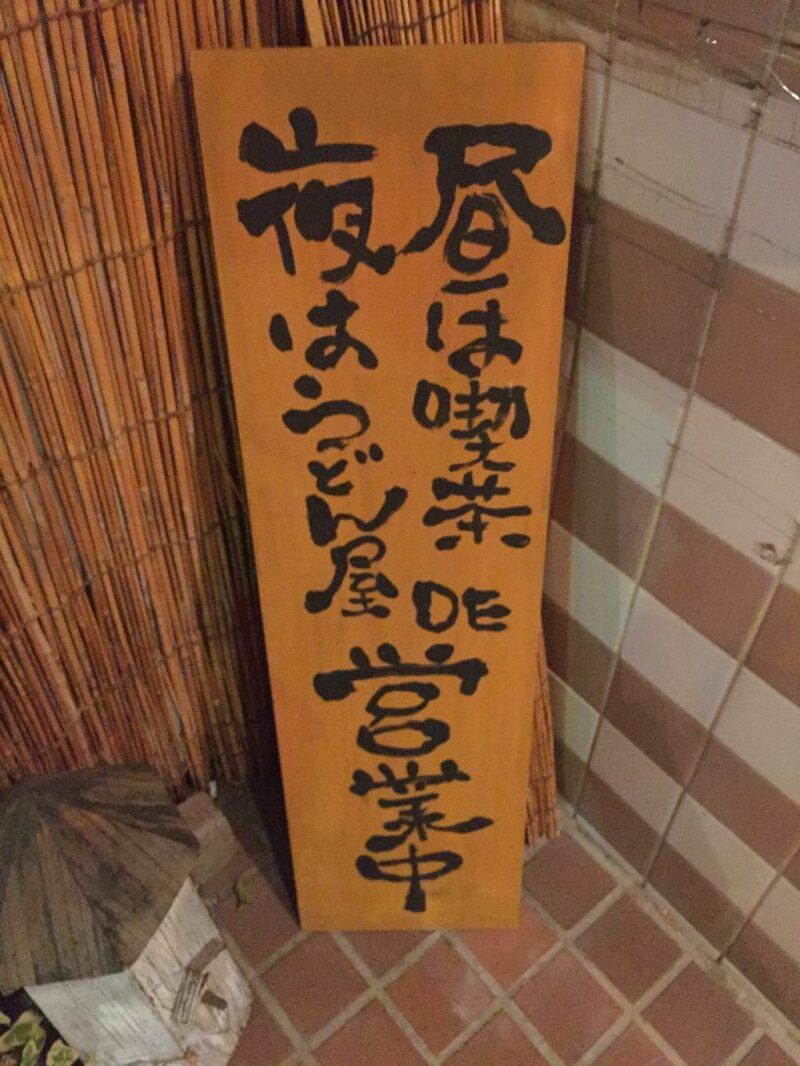 昼は喫茶
夜はうどん屋
DE
営業中